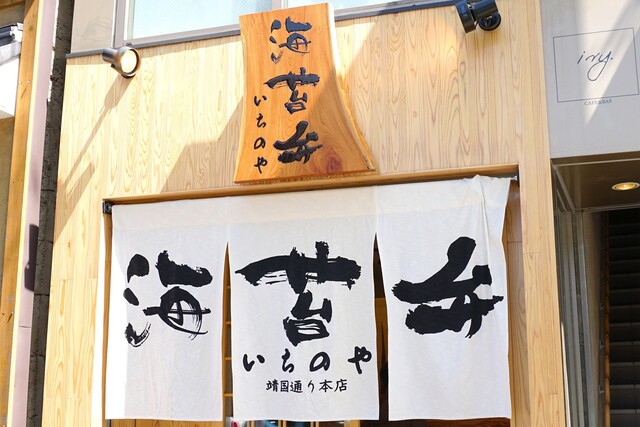 海苔弁
いちのや
海苔弁
いちのや
靖国通り本店
ivy.
CAFE&BAR